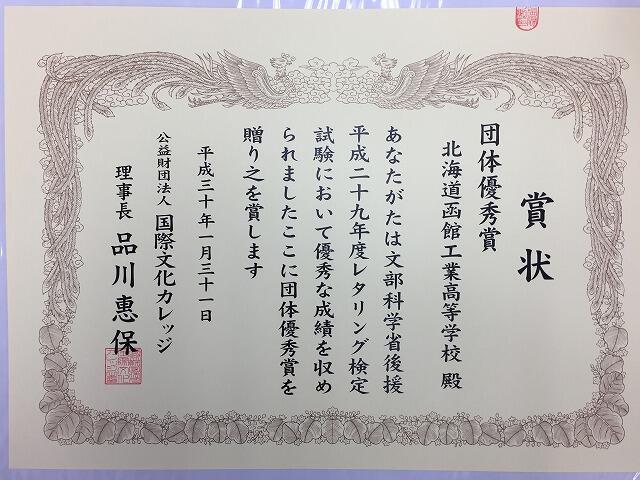 賞状
団体優秀賞
北海道函館工業高等学校 殿
あなたがたは文部科学省後援
平成二十九年度レタリング検定
試験において優秀な成績を収め
られましたここに団体優秀賞を
贈り之を賞します
平成三十年一月三十一日
公益財団法人 国際文化カレッジ
理事長 品川惠保